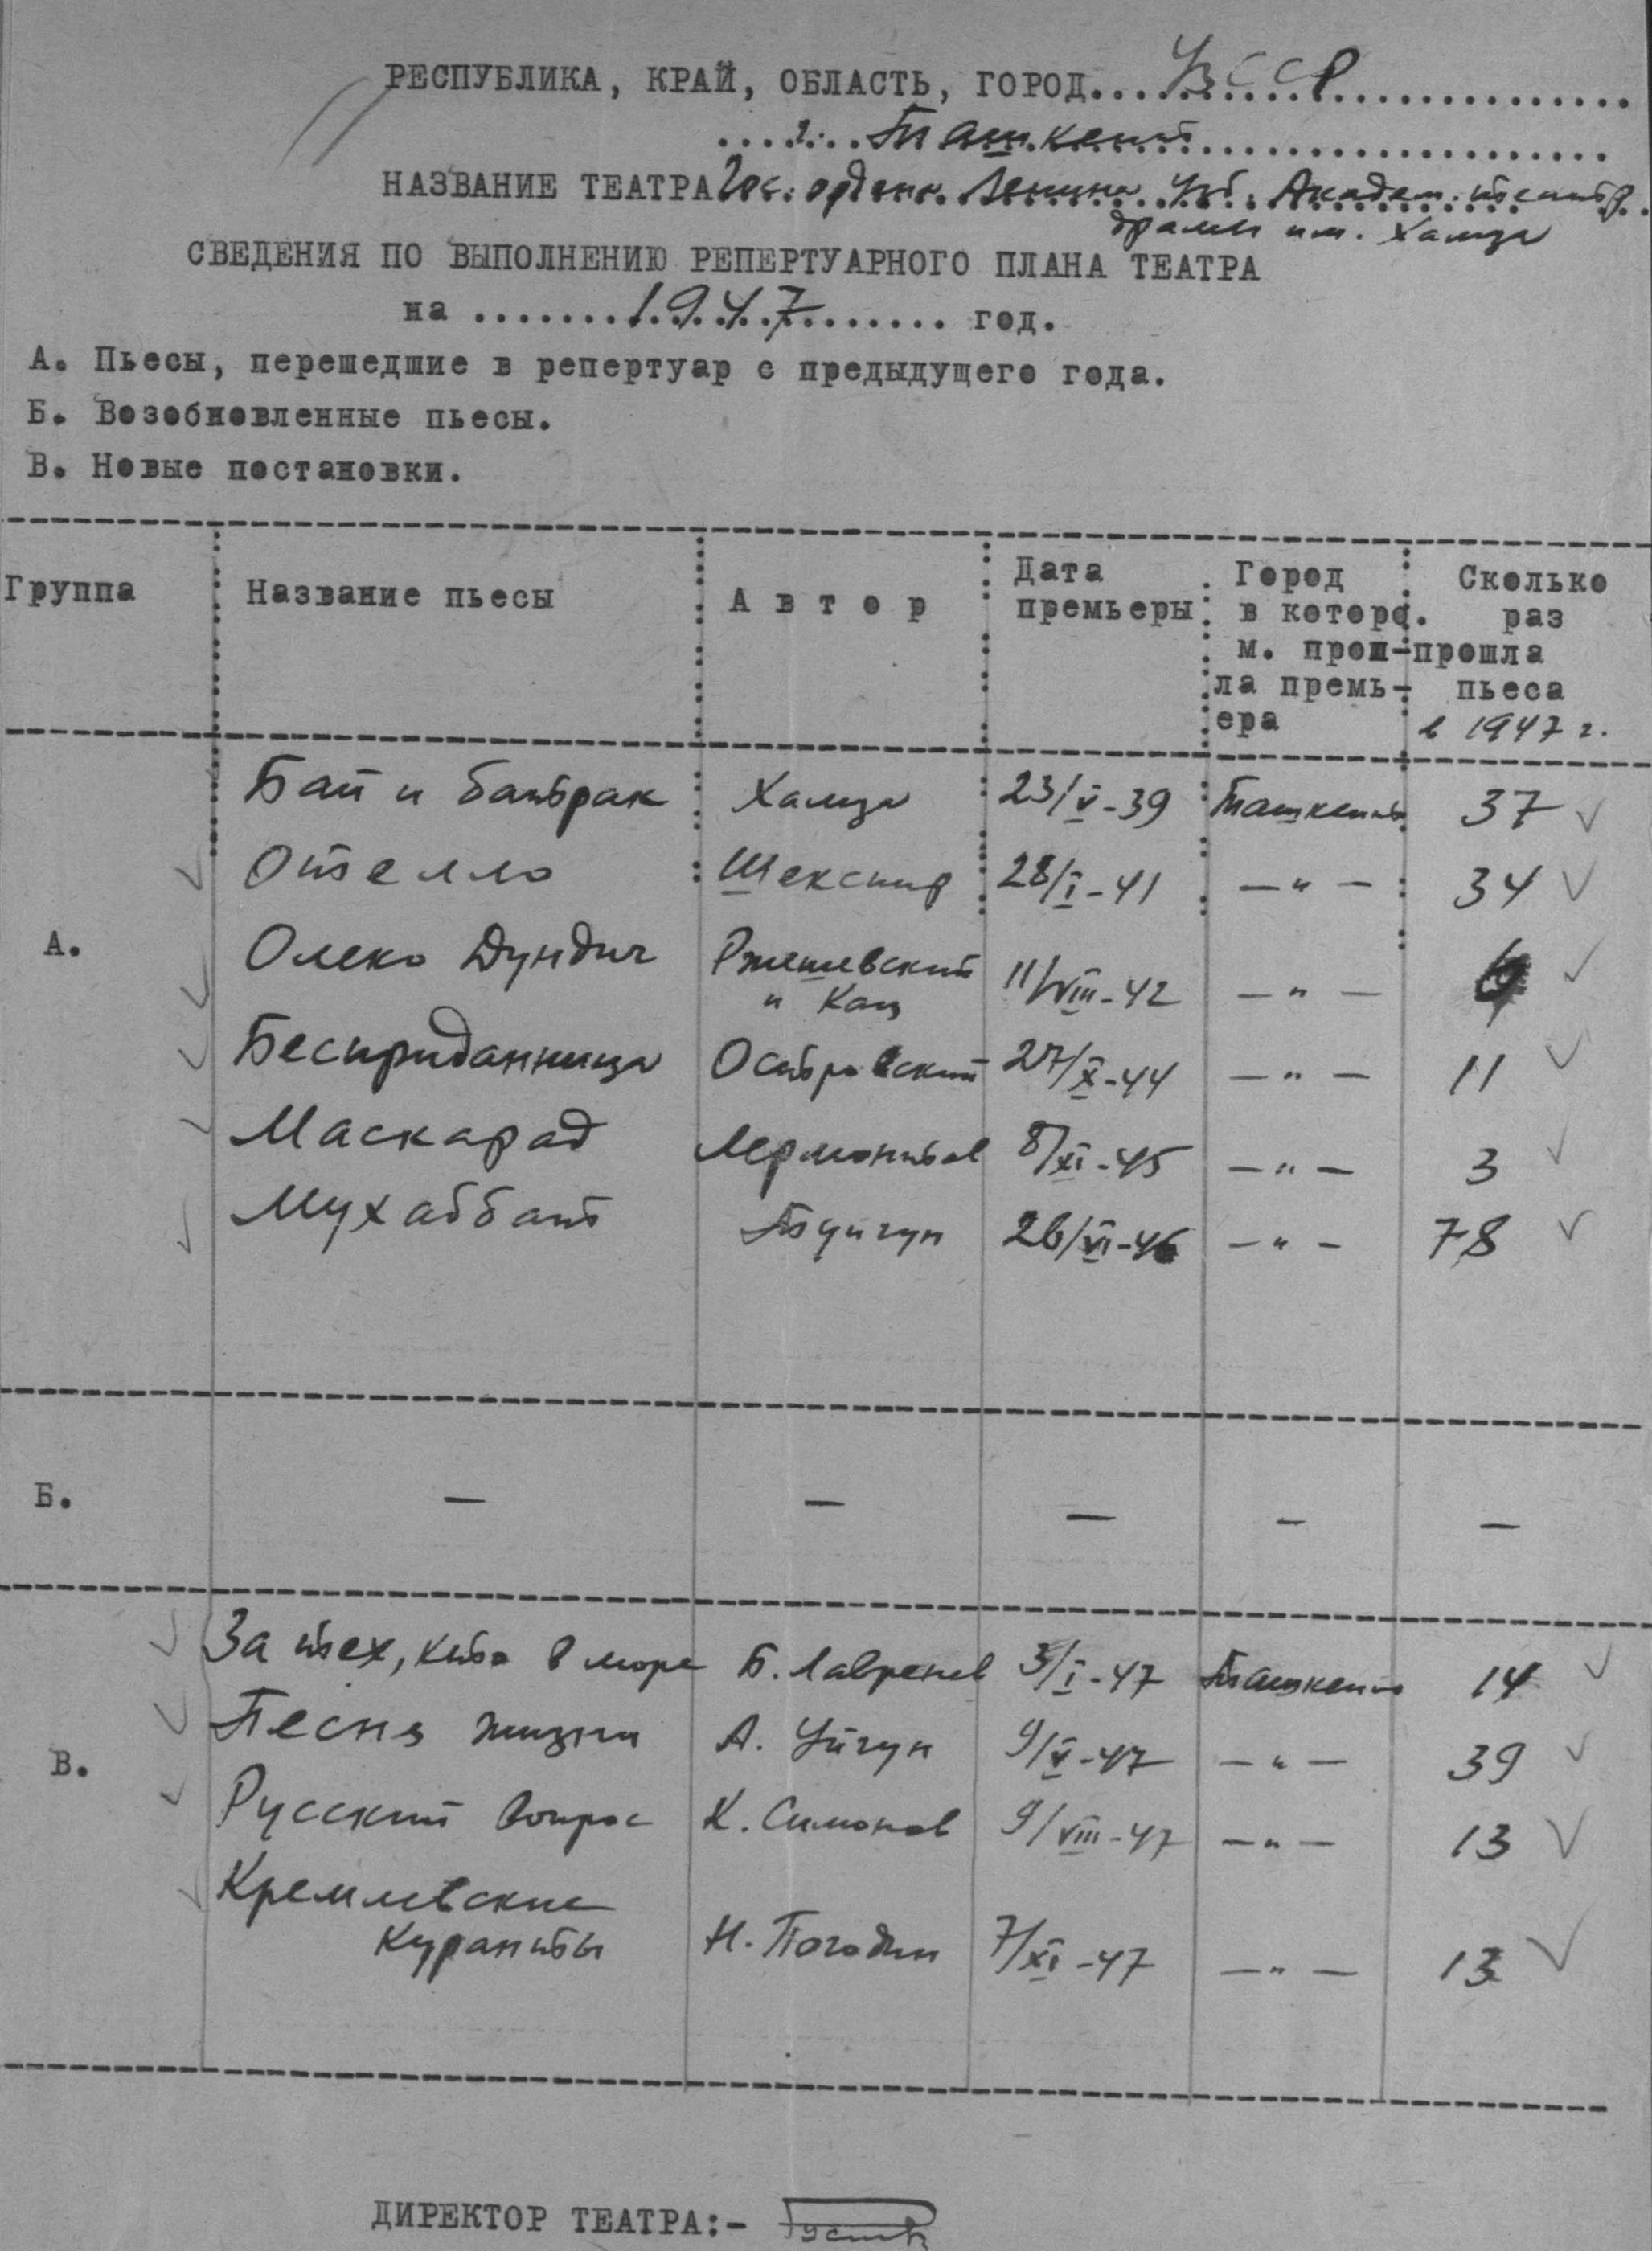 РЕСПУБЛИКА, КРАЙ, ОБЛАСТЬ, ГОРОД.... УзССР
г. Ташкент
НАЗВАНИЕ ТЕАТРА Гос. ордена Ленина Узб. Академ. театр
драмы им. Хамза
СВЕДЕНИЯ ПО ВЫПОЛНЕНИЮ РЕПЕРТУАРНОГО ПЛАНА ТЕАТРА
на ....... 1947 ....... год.
А. Пьесы, перешедшие в репертуар с предыдущего года.
Б. Возобновленные пьесы.
В. Новые постановки.
Группа Название пьесы Автор Дата премьеры Город в которо м. прош- ла премь- ера Сколько раз прошла пьеса в 1947 г.
Бай и батрак Хамза 23/V-39 Ташкент 37
Отелло Шекспир 28/I-41 -"- 34
А. Олеко Дундич Ржешевский и Кац 11/VIII-42 -"-
Бесприданница Островский 27/X-44 -"- 11
Маскарад Лермонтов 8/XI-45 -"- 3
Мухаббат Туйгун 26/VI-46 -"- 78
Б. — — — — —
За тех, кто в море Б. Лавренев 3/I-47 Ташкент 14
Песня жизни А. Уйгун 9/V-47 -"- 39
В.
Русский вопрос К. Симонов 9/VIII-47 -"- 13
Кремлевские
Куранты Н. Погодин 7/XI-47 -"- 13
ДИРЕКТОР ТЕАТРА:-